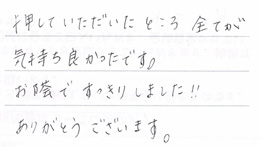 押していただいた ところ 全てが
気持ち良かったです。
お蔭で すっきりしました!!
ありがとう ございます。